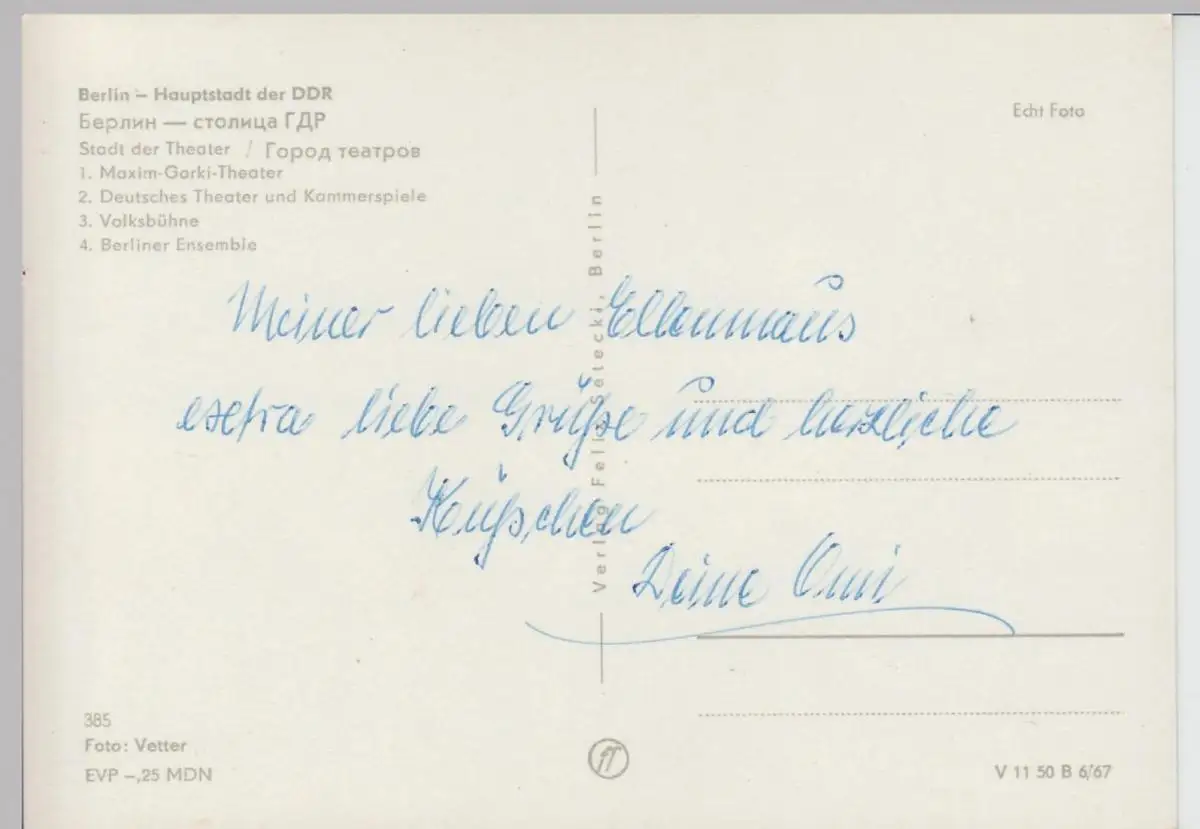 Berlin – Hauptstadt der DDR
Берлин — столица ГДР
Stadt der Theater / Город театров
1. Maxim-Gorki-Theater
2. Deutsches Theater und Kammerspiele
3. Volksbühne
4. Berliner Ensemble
Echt Foto
Meiner lieben Ellenmaus
extra liebe Grüße und herzliche
Küßchen
Deine Omi
Verlag Felix Setecki, Berlin
385
Foto: Vetter
EVP –,25 MDN
V 11 50 B 6/67